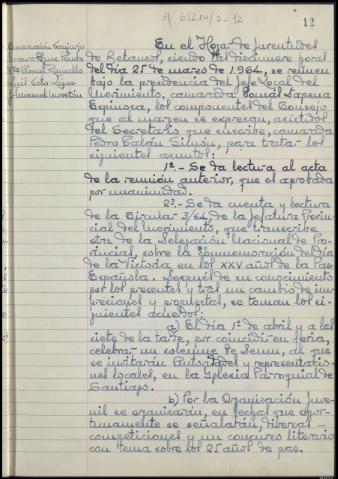 12
En el Hogar de Juventudes
de Betanzos, siendo las diecinueve horas
del día 25 de marzo de 1964, se reunen
bajo la presidencia del Jefe Local del
Movimiento, camarada Tomás Dapena
Espinosa, los componentes del Consejo
que al margen se expresan, asistidos
del Secretario que suscribe, camarada
Pedro Galán
para tratar los
siguientes asuntos:
1º.- Se da lectura al acta
de la reunión anterior, que es aprobada
por unanimidad.
2º.- Se da cuenta y lectura
de la Circular 3/64 de la Jefatura Provin-
cial del Movimiento, que transcribe
otra de la Delegación Nacional de Pro-
vincias, sobre la conmemoración del día
de la Victoria en los XXV años de la Paz
Española. Después de un conocimiento
por los presentes y tras un cambio de im-
presiones y propuestas, se toman los si-
guientes acuerdos:
a) El día 1º de abril y a las
siete de la tarde, por coincidir en feria,
celebrar un solemne Te Deum, al que
se invitarán Autoridades y representacio-
nes locales, en la Iglesia Parroquial de
Santiago.
b) Por la Organización Juve-
nil se organizarán, en fechas que opor-
tunamente se señalarán, diversas
competiciones y un concurso literario
con tema sobre los 25 años de paz.